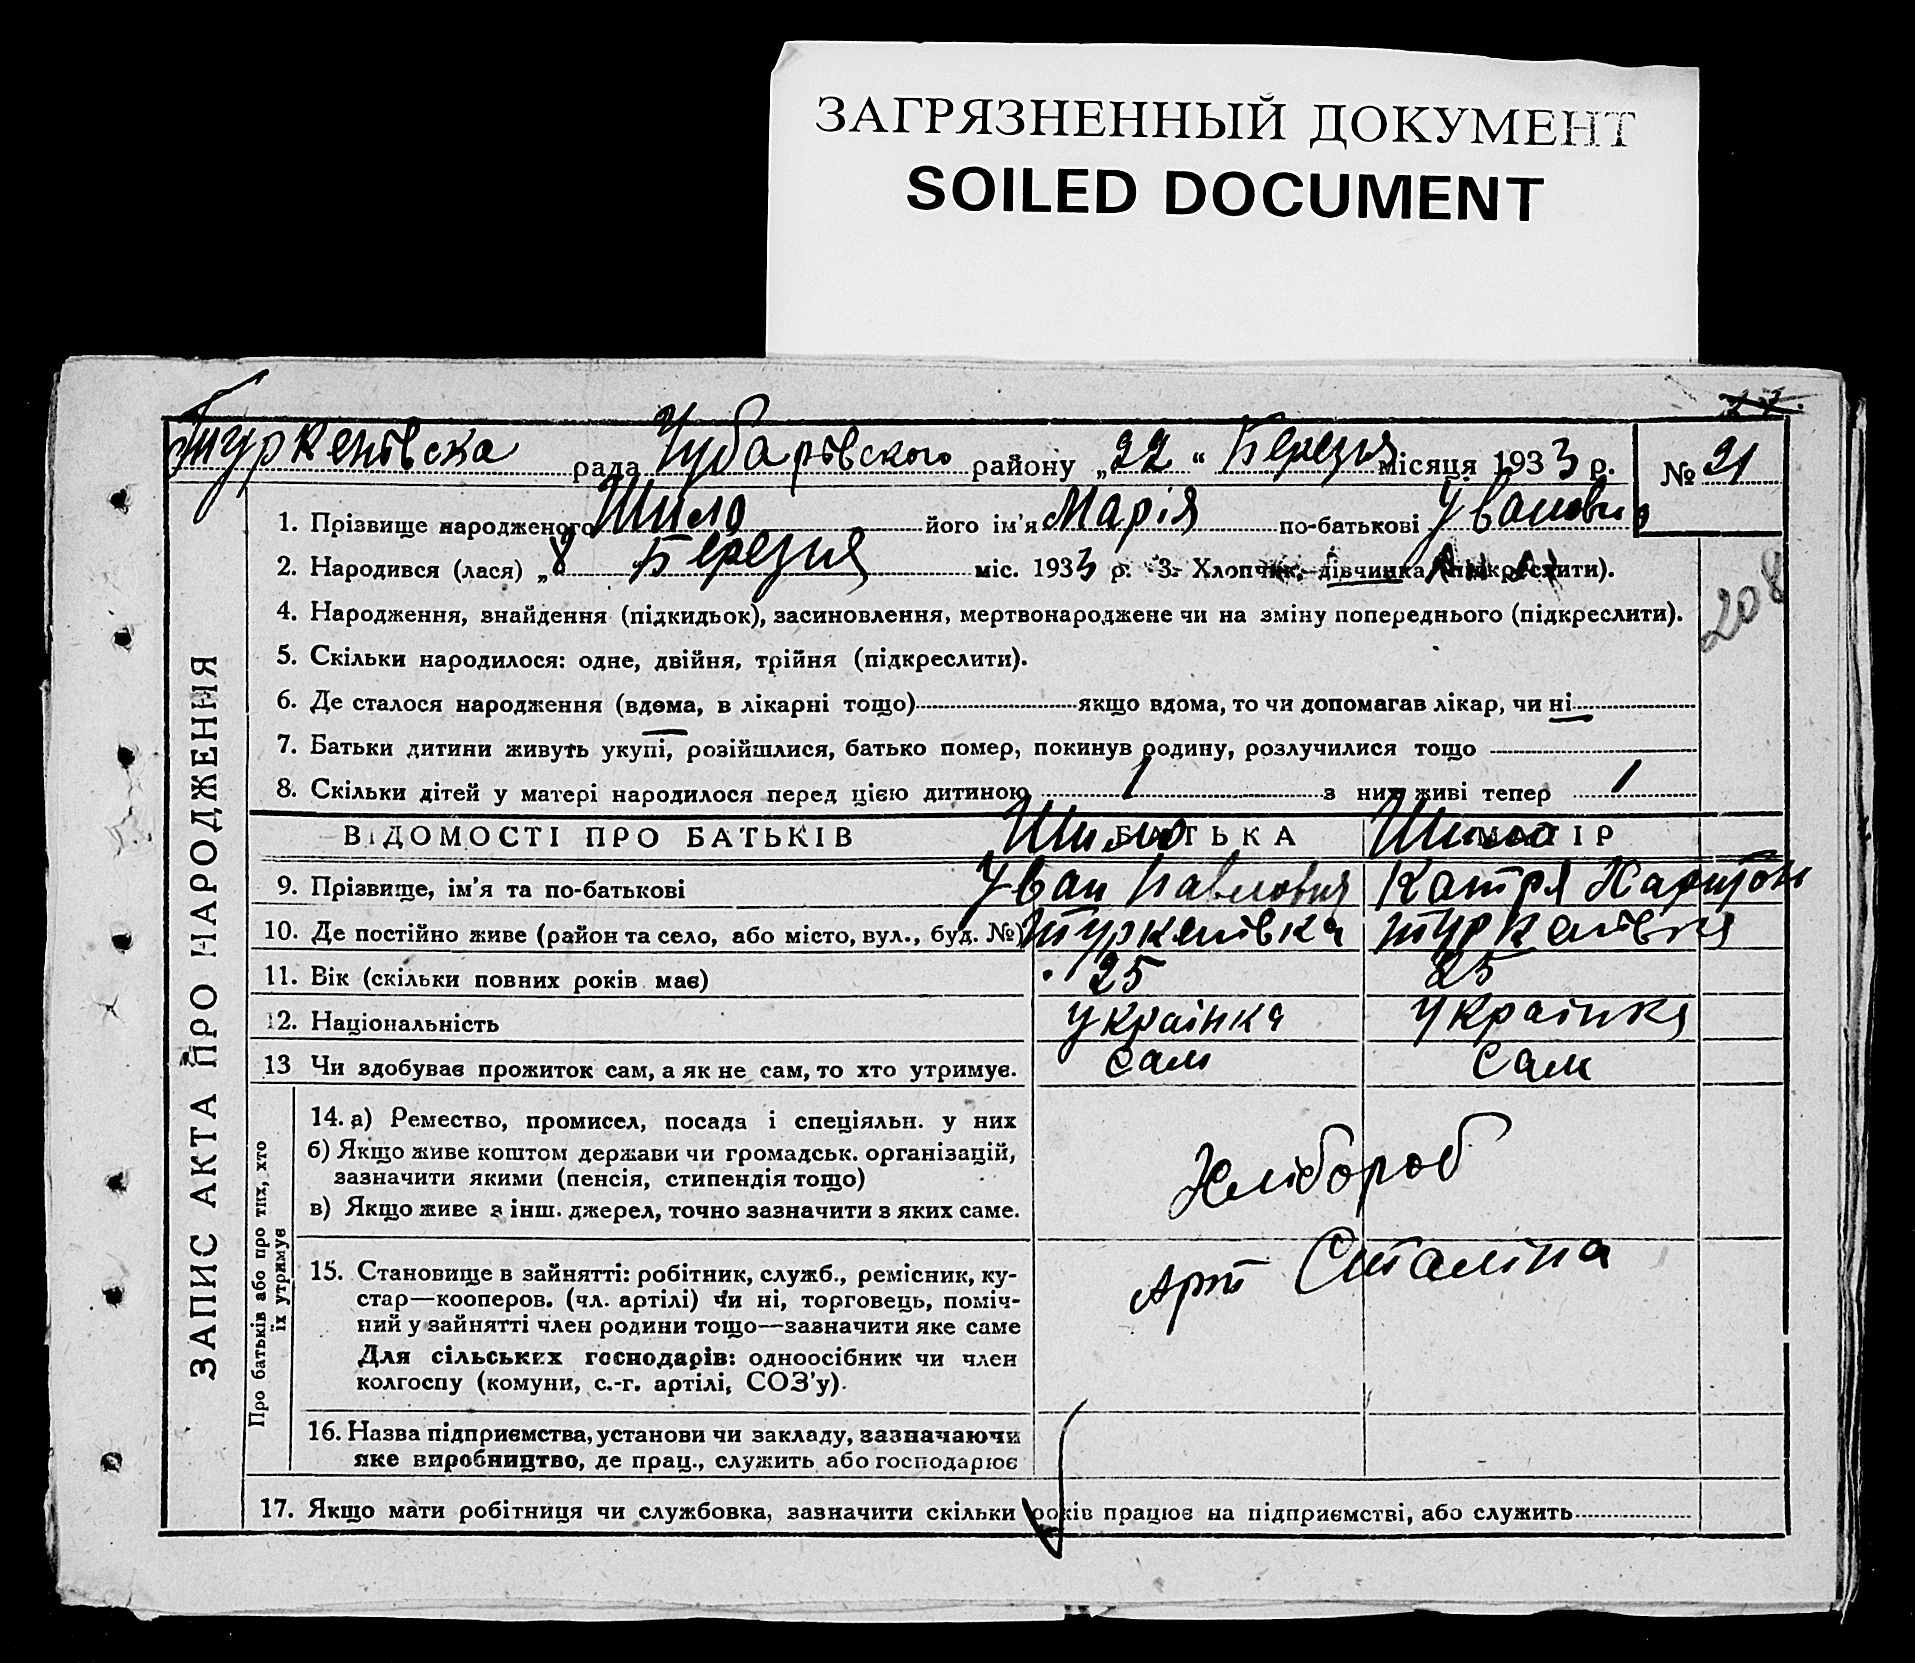 ЗАГРЯЗНЕННЫЙ ДОКУМЕНТ
SOILED DOCUMENT
Туркенівська рада Чубарівського району „22“ Березня місяця 1933 р. № 21
1. Прізвище народженого Шило його ім'я Марія по-батькові Івановна
2. Народився (лася) „8 Березня міс. 1933 р. 3. Хлопчик, дівчинка (підкреслити).
208
4. Народження, знайдення (підкидьок), засиновлення, мертвонароджене чи на зміну попереднього (підкреслити).
5. Скільки народилося: одне, двійня, трійня (підкреслити).
6. Де сталося народження (вдома, в лікарні тощо) якщо вдома, то чи допомагав лікар, чи ні
7. Батьки дитини живуть укупі, розійшлися, батько помер, покинув родину, розлучилися тощо
8. Скільки дітей у матері народилося перед цією дитиною 1 з них живі тепер 1
ВІДОМОСТІ ПРО БАТЬКІВ БАТЬКА МАТІР
Шило Шило
9. Прізвище, ім'я та по-батькові Іван Павлович Катря Харитон
10. Де постійно живе (район та село, або місто, вул., буд. №) Туркенівка Туркенівка
11. Вік (скільки повних років має) 25 25
12. Національність Українка Українка
13 Чи здобуває прожиток сам, а як не сам, то хто утримує. Сам Сам
14. а) Ремество, промисел, посада і спеціяльн. у них
б) Якщо живе коштом держави чи громадськ. організацій,
зазначити якими (пенсія, стипендія тощо)
в) Якщо живе з інш. джерел, точно зазначити з яких саме.
Хлібороб
15. Становище в зайнятті: робітник, служб., ремісник, ку-
стар—кооперов. (чл. артілі) чи ні, торговець, поміч-
ний у зайнятті член родини тощо—зазначити яке саме
Для сільських господарів: одноосібник чи член
колгоспу (комуни, с.-г. артілі, СОЗ'у).
Арт Сталіна
16. Назва підприємства, установи чи закладу, зазначаючи
яке виробництво, де прац., служить або господарює
17. Якщо мати робітниця чи службовка, зазначити скільки років працює на підприємстві, або служить
ЗАПИС АКТА ПРО НАРОДЖЕННЯ
Про батьків або про тих, хто
їх утримує